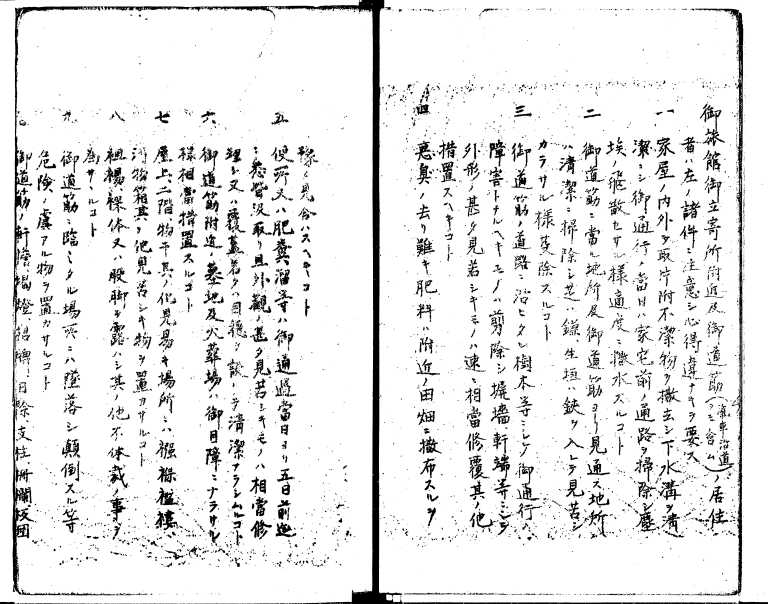 御旅館御立寄所附近及御道筋(滊車沿道ヲモ含ム)ノ居住
者ハ左ノ諸件ニ注意シ心得違ナキヲ要ス
一 家屋ノ内外ヲ取片附不潔物ヲ撤去シ下水溝ヲ清
潔ニシ御通行ノ當日ハ家宅前ノ通路ヲ掃除シ塵
埃ノ飛散セサル様適度ニ撒水スルコト
二 御道筋ニ當ル地所及御道筋ヨリ見通ス地所
ハ清潔ニ掃除シ芝ハ鎌、生垣ハ鋏ヲ入レテ見苦シ
カラサル様芟除スルコト
三 御道筋ノ道路ニ沿ヒタル樹木等ニシテ御通行ノ
障害トナルヘキモノハ剪除シ塀墻軒端等ニシテ
外形ノ甚タ見苦シキモノハ速ニ相當修覆其ノ他
措置スヘキコト
四 悪臭ノ去リ難キ肥料ハ附近ノ田畑ニ撒布スルヲ
豫メ見合ハスヘキコト
五 便所又ハ肥糞溜等ハ御通過當日ヨリ五日前迄
ニ悉皆汲取リ且外觀ノ甚タ見苦シキモノハ相當修
理シ又ハ覆蓋若クハ目穏ヲ設ケテ清潔ナラシムルコト
六 御道筋附近ノ墓地及火葬場ハ御目障ニナラサル
様相當措置スルコト
七 屋上、二階物干其ノ他見易キ場所ニハ襁褓襤褸、
汚物箱其ノ他見苦シキ物ヲ置カサルコト
八 袒裼裸体又ハ股脚ヲ露ハシ其ノ他不体裁ノ事ヲ
為サルコト
九 御道筋ニ臨ミタル場所ニハ墜落シ顛倒スル等
危険ノ虞アル物ヲ置カサルコト
御道筋ノ軒檐掲燈招牌、日除、支柱柵欄板囲